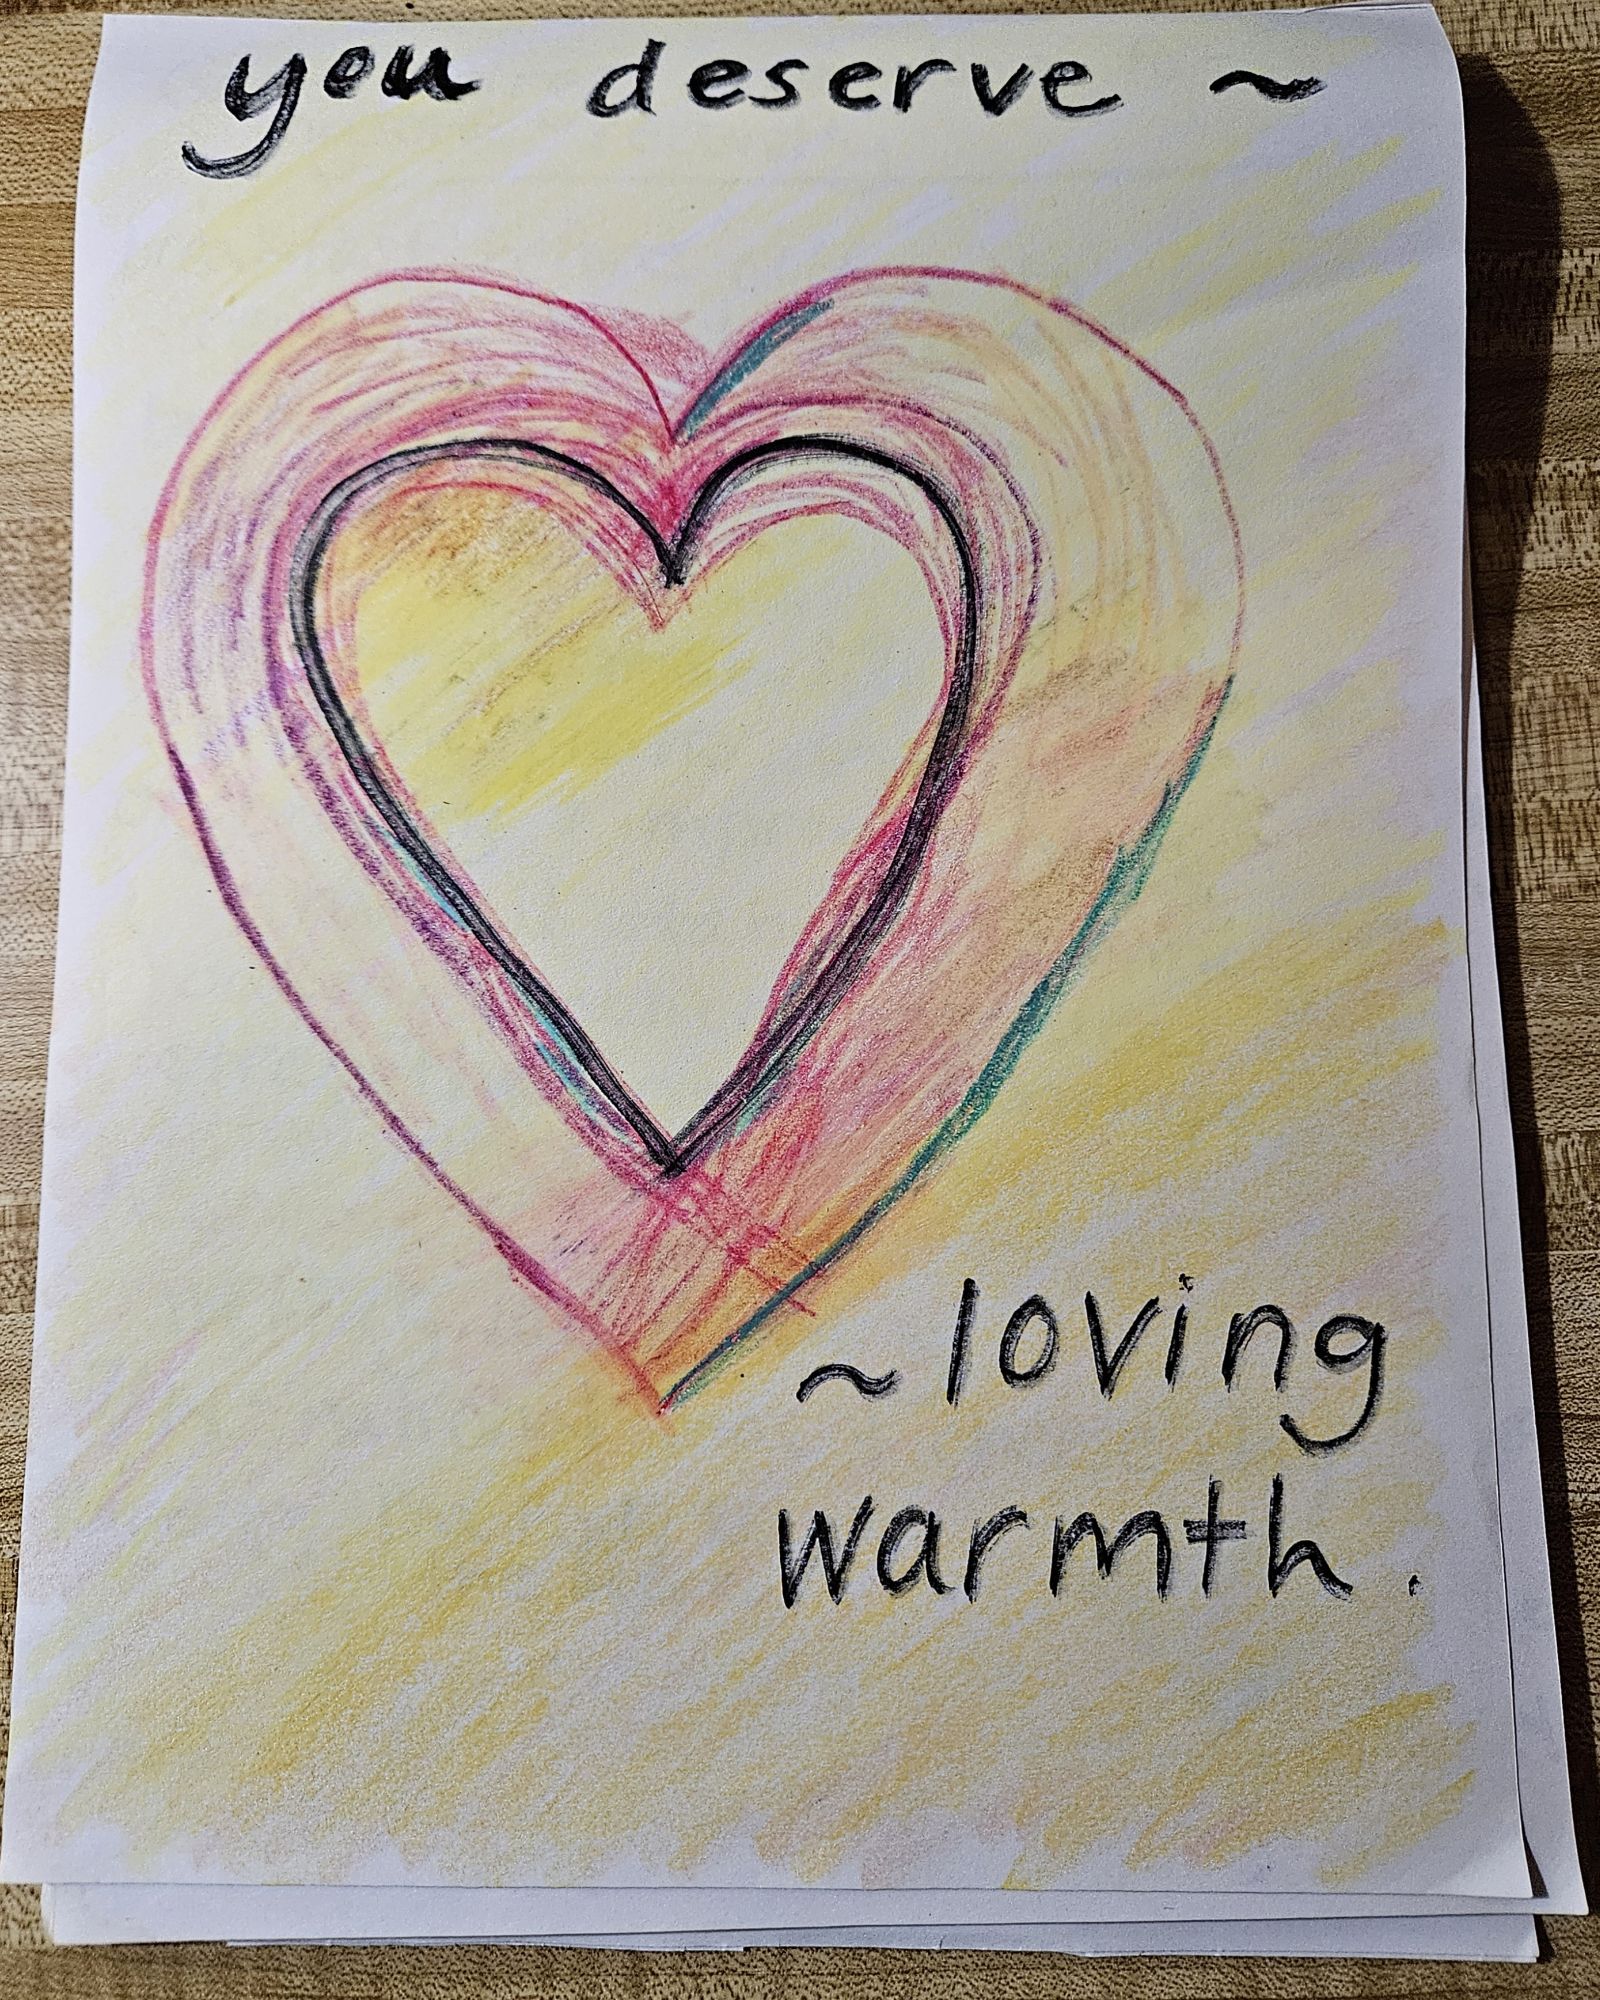 you deserve ~
~ loving
warmth.